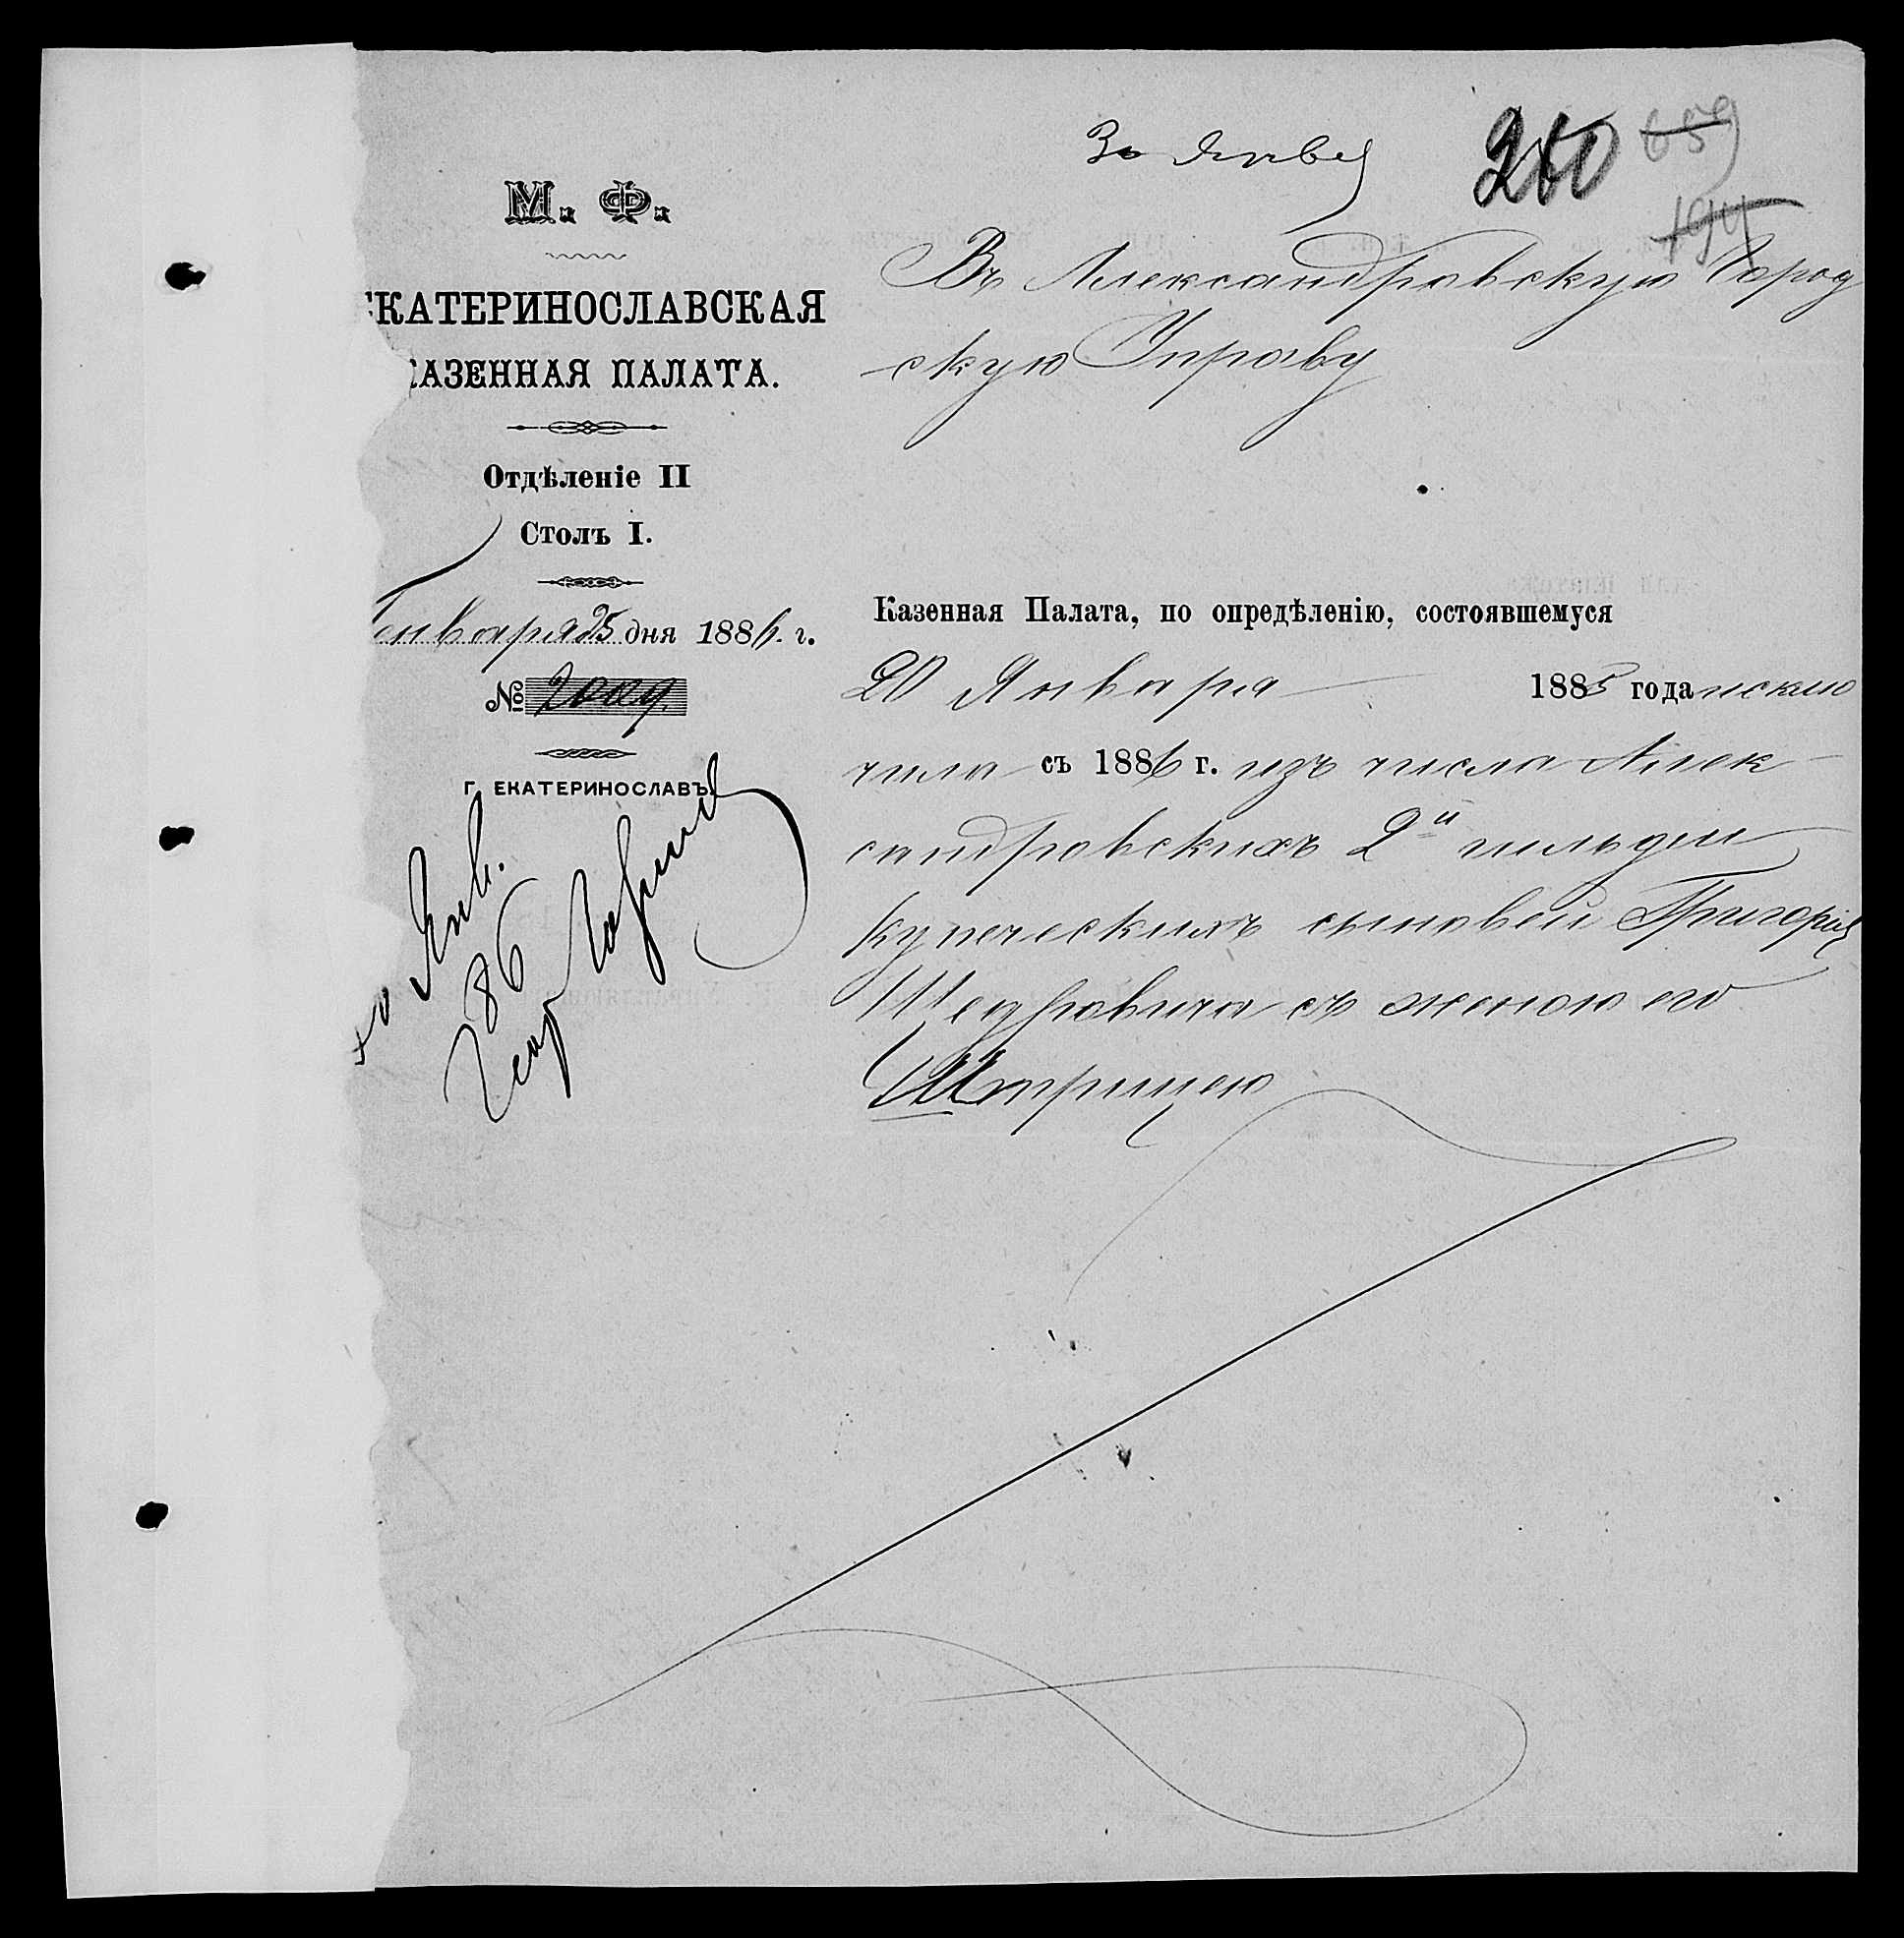 30 Янва
260
659
194
М. Ф.
ЕКАТЕРИНОСЛАВСКАЯ
КАЗЕННАЯ ПАЛАТА.
Отдѣленіе II
Столъ I.
Генваря 25 дня 1886. г.
№ 2009.
Г. ЕКАТЕРИНОСЛАВЪ.
Янв.
86
Въ Александровскую Город
скую Управу
Казенная Палата, по опредѣленію, состоявшемуся
20 Января 1885 года исклю
чила съ 1886 г. изъ числа Алек
сандровскихъ 2й гильдіи
купеческихъ сыновей Григорія
съ женою его